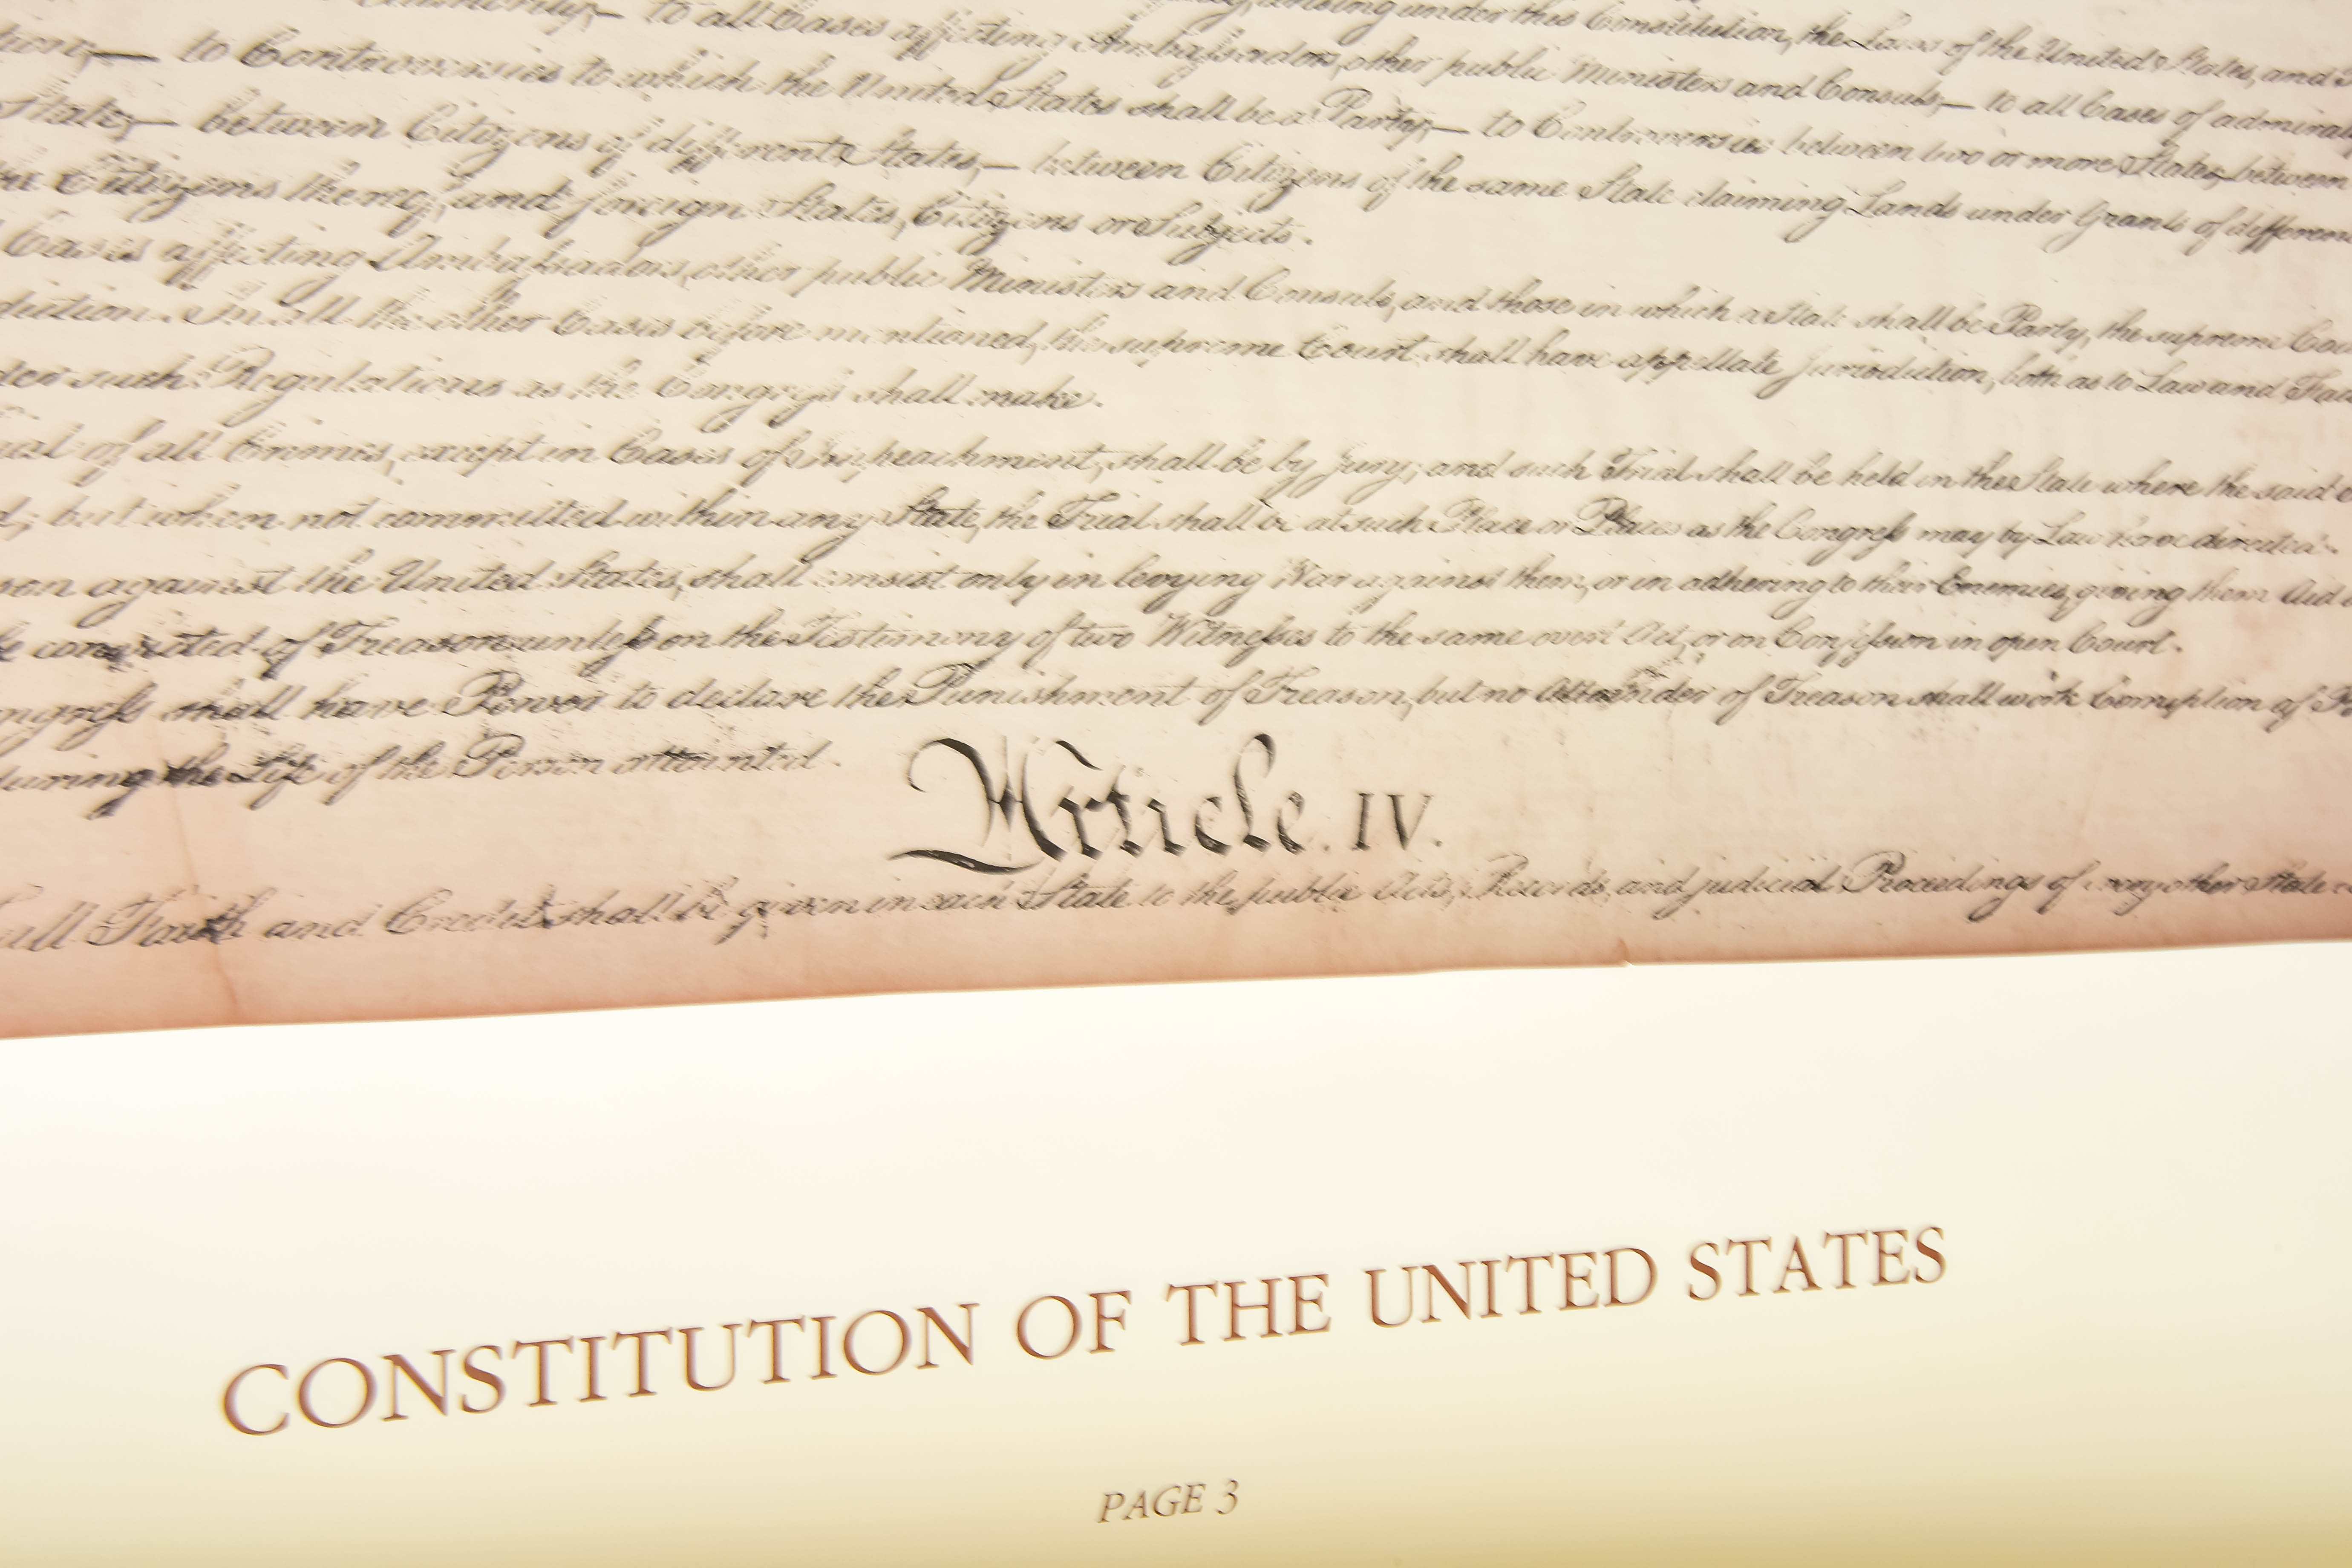 to all Cases affecting Ambassadors, other public Ministers and Consuls;— to all Cases of admiral
to Controversies to which the United States shall be a Party;— to Controversies between two or more States;— between
State;— between Citizens of different States,— between Citizens of the same State claiming Lands under Grants of different
the Citizens thereof, and foreign States, Citizens or Subjects.
Cases affecting Ambassadors, other public Ministers and Consuls, and those in which a State shall be Party, the supreme Cou
diction. In all the other Cases before mentioned, the supreme Court shall have appellate Jurisdiction, both as to Law and Fact
der such Regulations as the Congress shall make.
ial of all Crimes, except in Cases of Impeachment, shall be by Jury; and such Trial shall be held in the State where the said
d; but when not committed within any State, the Trial shall be at such Place or Places as the Congress may by Law have directed.
son against the United States, shall consist only in levying War against them, or in adhering to their Enemies, giving them Aid
be convicted of Treason unless on the Testimony of two Witnesses to the same overt Act, or on Confession in open Court.
ngress shall have Power to declare the Punishment of Treason, but no Attainder of Treason shall work Corruption of
during the Life of the Person attainted.
Article. IV.
ull Faith and Credit shall be given in each State to the public Acts, Records, and judicial Proceedings of every other State
CONSTITUTION OF THE UNITED STATES
PAGE 3